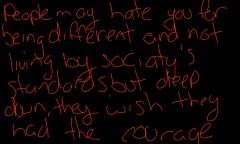 People may hate you for
being different and not
living by society's
standards but deep
down, they wish they
had the courage